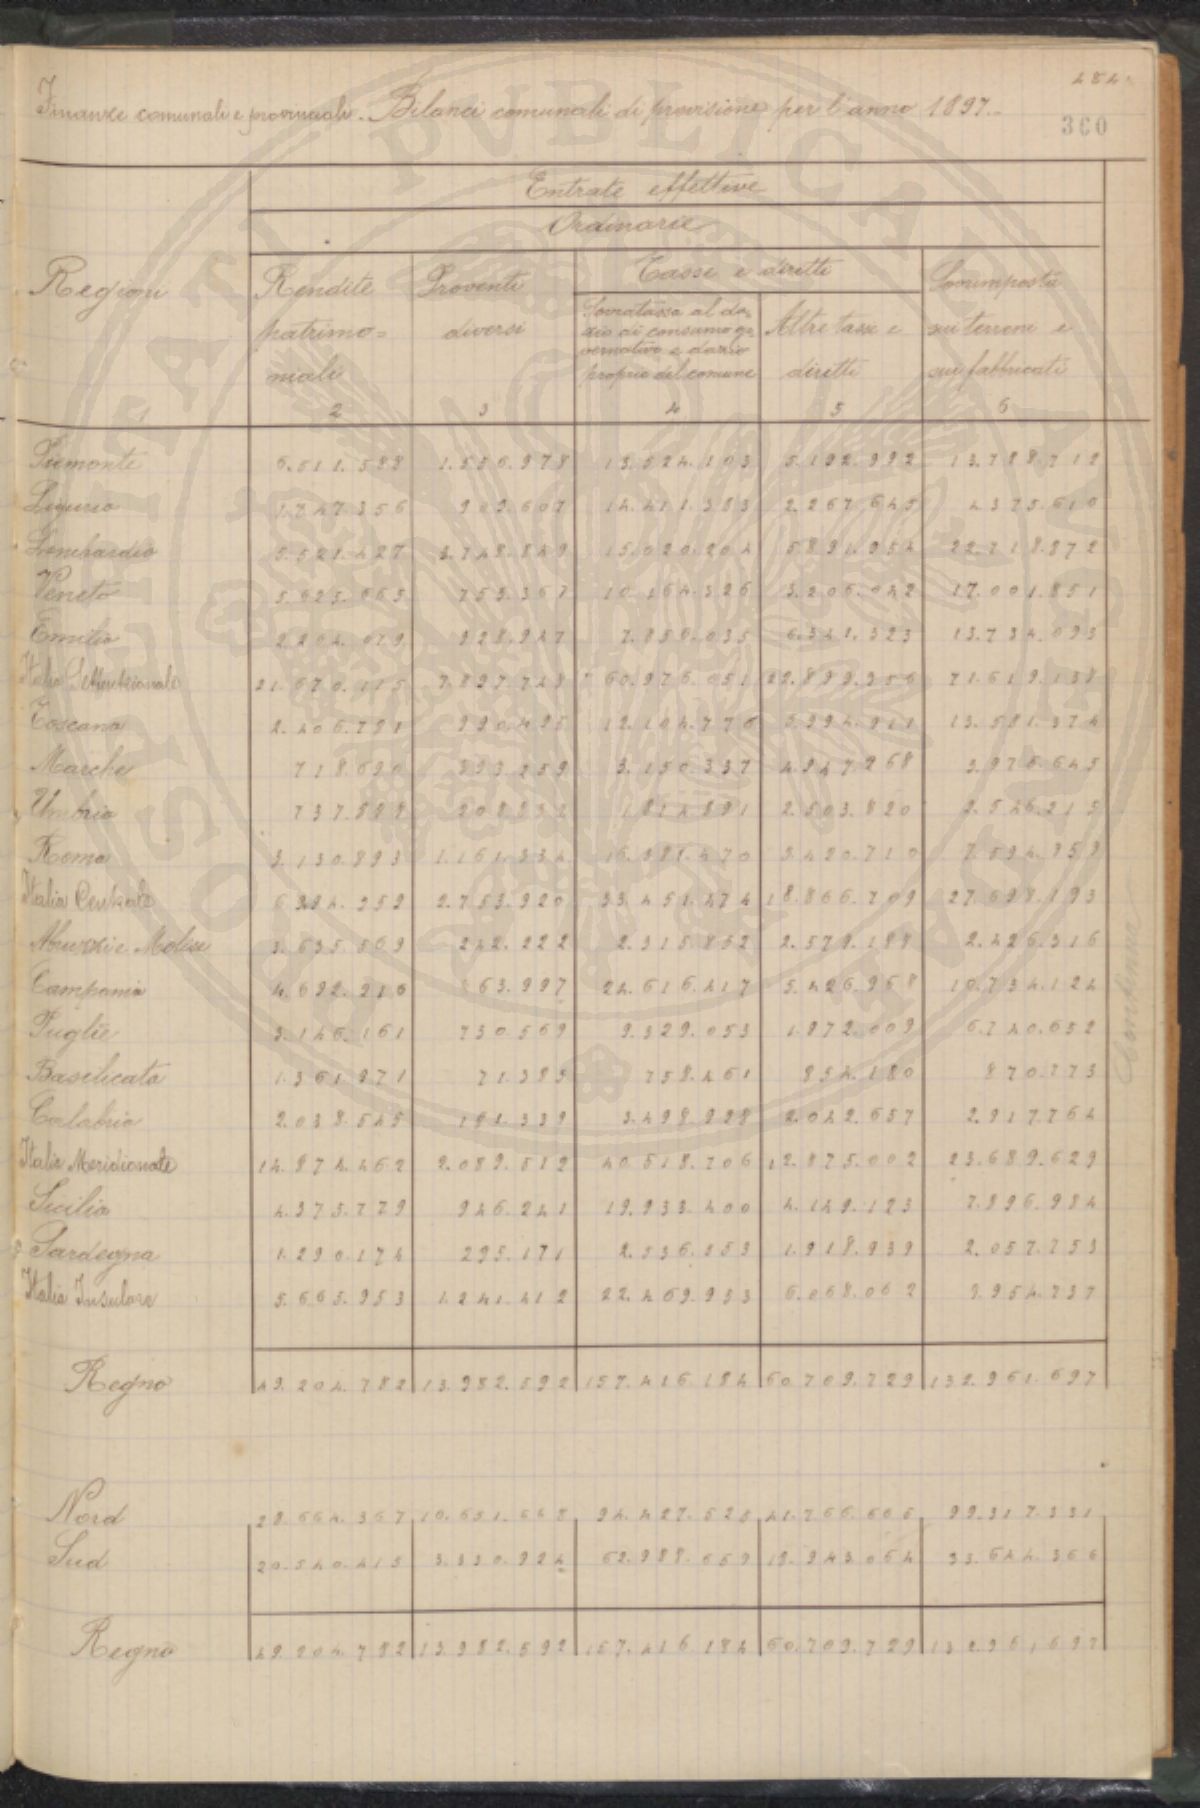 484
Finanze comunali e provinciali. Bilanci comunali di previsione per l'anno 1897.
360
Entrate effettive
Ordinarie
Regioni Rendite patrimoniali Proventi diversi Tasse e diritti Sovrimposta sui terreni e sui fabbricati
Sovratassa al dazio di consumo governativo e dazio proprio del comune Altre tasse e diritti
1 2 3 4 5 6
Piemonte 13.524.103 5.192.992
Liguria 1.747.356 909.607 14.411.383 2.267.645 4.375.610
Lombardia 5.521.427 3.748.849 15.020.204 5.891.954 22.718.872
Veneto 753.367 10.164.326 3.206.042 17.001.851
Emilia 2.204.079 928.947 7.856.035 6.341.323 13.734.093
Italia Settentrionale 21.670.115 7.897.748 60.976.051 22.899.956 71.619.138
Toscana 2.406.781 990.495 12.104.776 5.994.911 13.581.374
Marche 718.690 393.259 3.150.337 4.947.268 3.976.645
Umbria 1.814.891 2.503.820 2.546.215
Roma 3.130.893 1.161.334 16.381.470 3.420.710 7.594.959
Italia Centrale 2.753.920 33.451.474 18.866.709 27.698.193
Abruzzi e Molise 3.635.569 242.222 2.315.852 2.579.188 2.426.316
Campania 4.692.216 24.616.417 5.426.968 10.734.124
Puglie 3.146.161 730.569 9.329.053 1.972.009 6.740.652
Basilicata 1.361.971 71.385 758.461 854.180 870.773
Calabria 2.038.545 181.339 3.498.928 2.042.657 2.917.764
Italia Meridionale 14.874.462 2.089.512 40.518.706 12.875.002 23.689.629
Sicilia 4.375.779 946.241 19.933.400 4.149.123 7.896.984
Sardegna 1.290.174 295.171 2.536.553 1.918.939 2.057.753
Italia Insulare 5.665.953 1.241.412 22.469.953 6.068.062 9.954.737
Regno 49.204.782 13.982.592 157.416.184 60.709.729 132.961.697
Nord 28.664.367 10.651.668 94.427.525 41.766.665 99.317.331
Sud 20.540.415 3.330.924 62.988.659 18.943.064 33.644.366
Regno 49.204.782 13.982.592 157.416.184 60.709.729 132.961.697
Continua